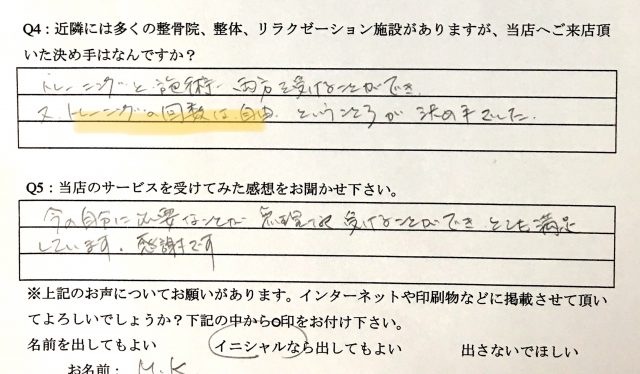 Q4：近隣には多くの整骨院、整体、リラクゼーション施設がありますが、当店へご来店頂
いた決め手はなんですか？
トレーニングと施術、両方を受けることができ
又、トレーニングの回数は自由、というところが決め手でした。
Q5：当店のサービスを受けてみた感想をお聞かせ下さい。
今の自分に必要なことが無理なく受けることができ、とても満足
しています。感謝です
※上記のお声についてお願いがあります。インターネットや印刷物などに掲載させて頂い
てよろしいでしょうか？下記の中から○印をお付け下さい。
名前を出してもよい　イニシャルなら出してもよい　出さないでほしい
お名前：M.K